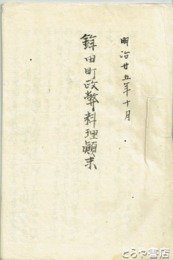 明治廿五年十月
鉾田町政弊料理顛末
とうや書店